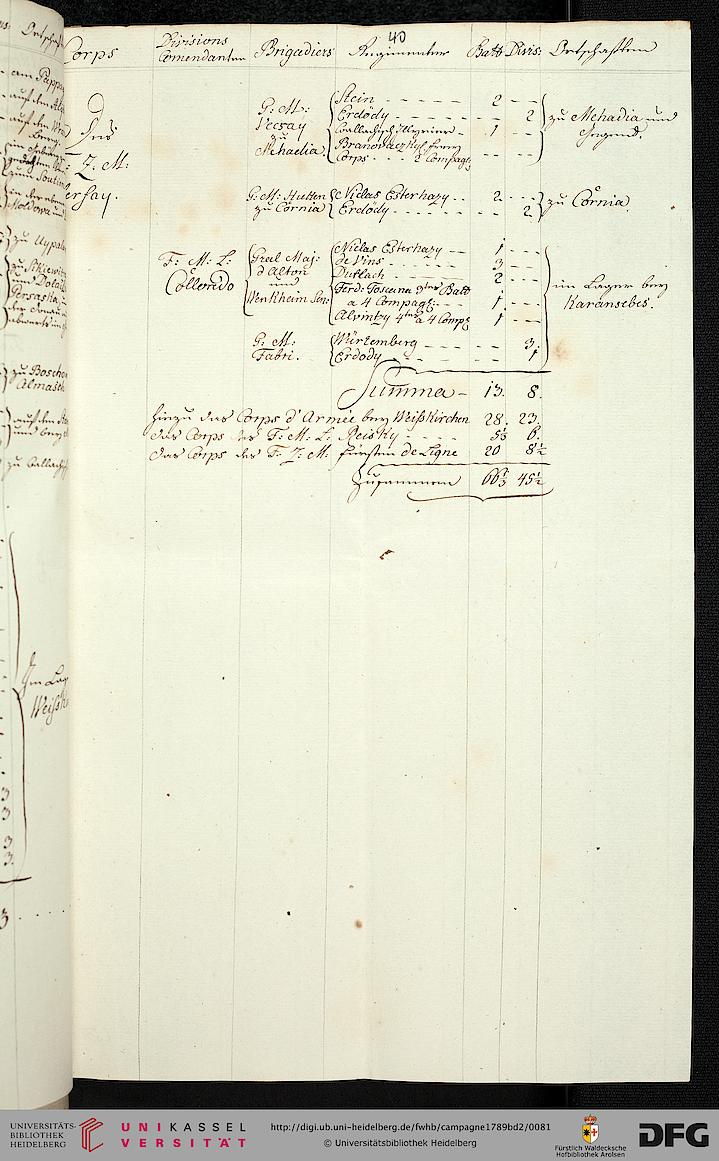 40
Corps Divisions Comendanten Brigadiers Regimenter Batt: Divis: Ortschafften
Des
F: Z: M:
G: M: Vecsay zu Mehadia
Stein 2
Erdödy 2
Wallachisch Illyrier 1
Branovaczky Frey
Corps 2 Compag:
zu Mehadia und Gegend.
G: M: Hutten zu Cornia
Niclas Esterhazy 2
Erdödy 2
zu Cornia.
F: M: L: Colleredo
Gral Maj: d'Alton und Wenkheim Sen:
Niclas Esterhazy 1
de Vins 3
Durlach 2
Ferd: Toscana 3ter Batt
a 4 Compag: 1
Alvintzy 4ter a 4 Comp: 1
im Lager bey Karansebes.
G: M: Fabri.
Würtemberg 3
Erdödy 1
Summa 13. 8.
hinzu das Corps d'Armée bey Weißkirchen 28. 23.
das Corps des F: M: L: Reisky 5⅓ 6.
das Corps des F: Z: M: Fürsten de Ligne 20 8½
Zusammen 66⅓ 45½
UNIVERSITÄTS-
BIBLIOTHEK
HEIDELBERG
UNIKASSEL
VERSITÄT
http://digi.ub.uni-heidelberg.de/fwhb/campagne1789bd2/0081
© Universitätsbibliothek Heidelberg
Fürstlich Waldecksche
Hofbibliothek Arolsen
DFG